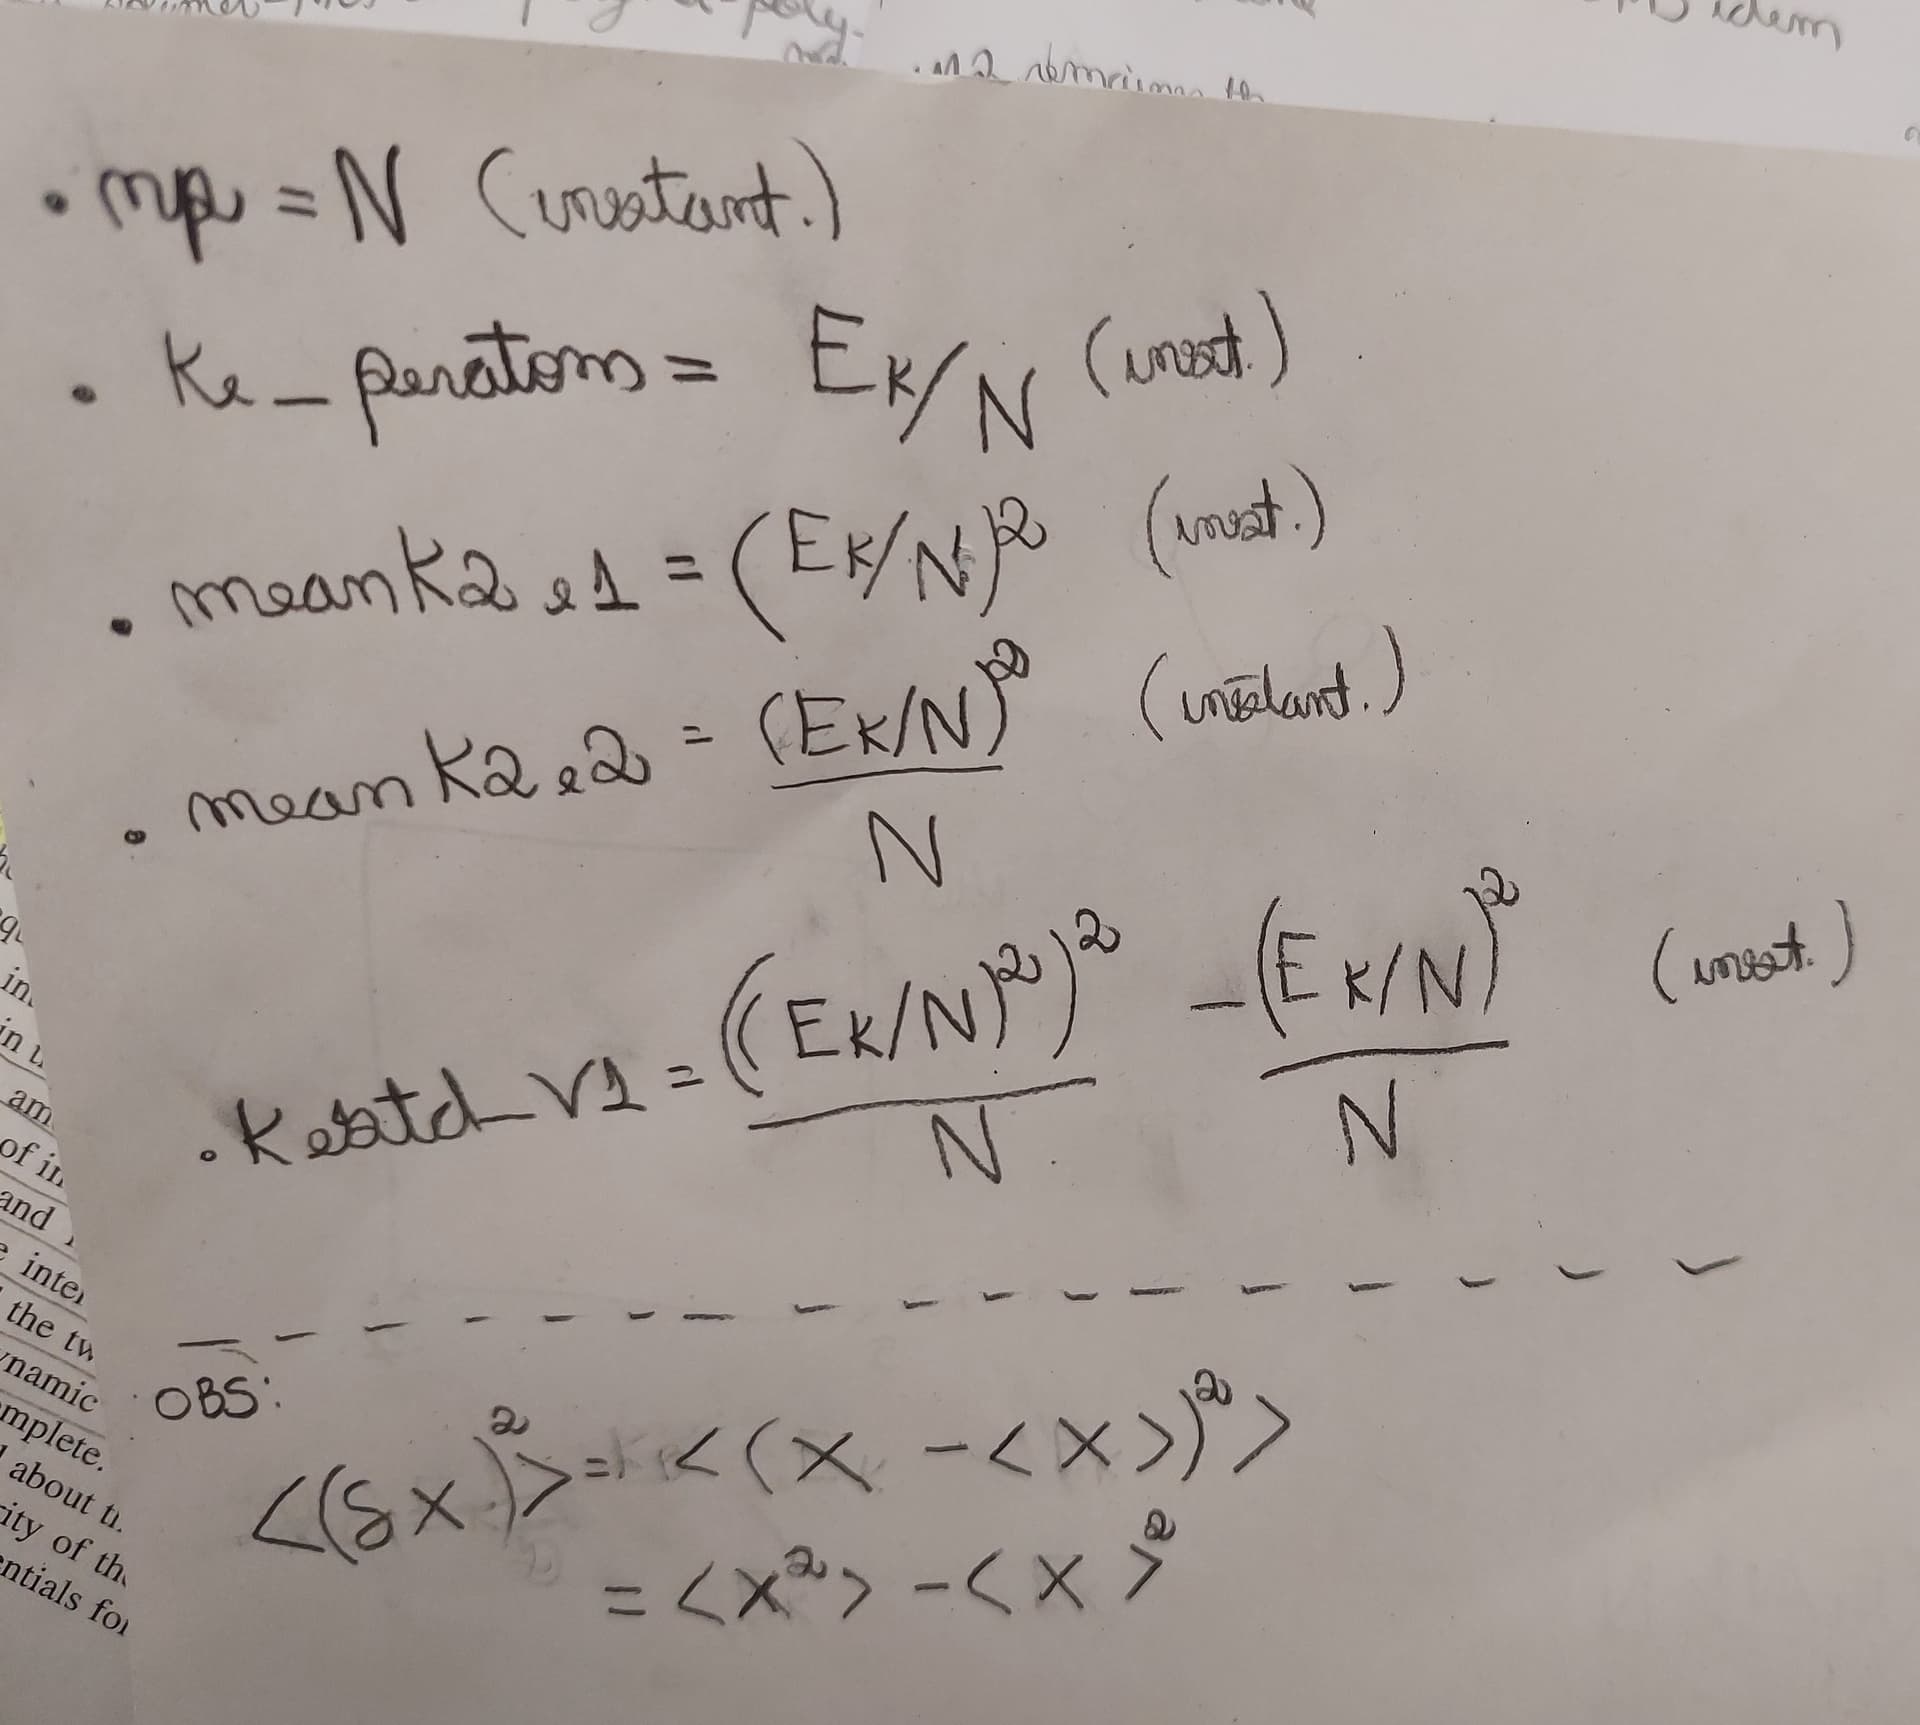 poly-
idem
· np = N (instant.)
· Ke_peratom = EK/N (inst.)
· meanK2e1 = (EK/N)² (inst.)
· meanK2e2 = (EK/N)² / N (instant.)
· Kestd_V1 = ((EK/N)²)² / N - (EK/N)² / N (inst.)
OBS:
<(δx)²> = <(x - <x>)²>
= <x²> - <x>²
in
am
and
the tw
namic
mplete.
about
ity of the
ntials for